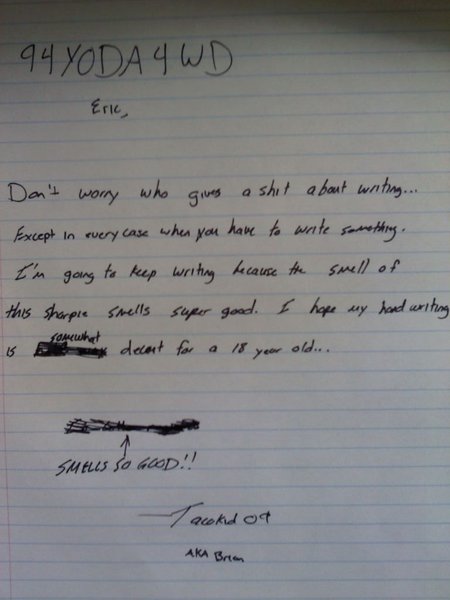 94YODA4WD
Eric,
Don't worry who gives a shit about writing...
Except in every case when you have to write something.
I'm going to keep writing because the smell of
this sharpie smells super good. I hope my hand writing
is somewhat decent for a 18 year old...
SMELLS SO GOOD!!
—Tacokid 09
AKA Brian